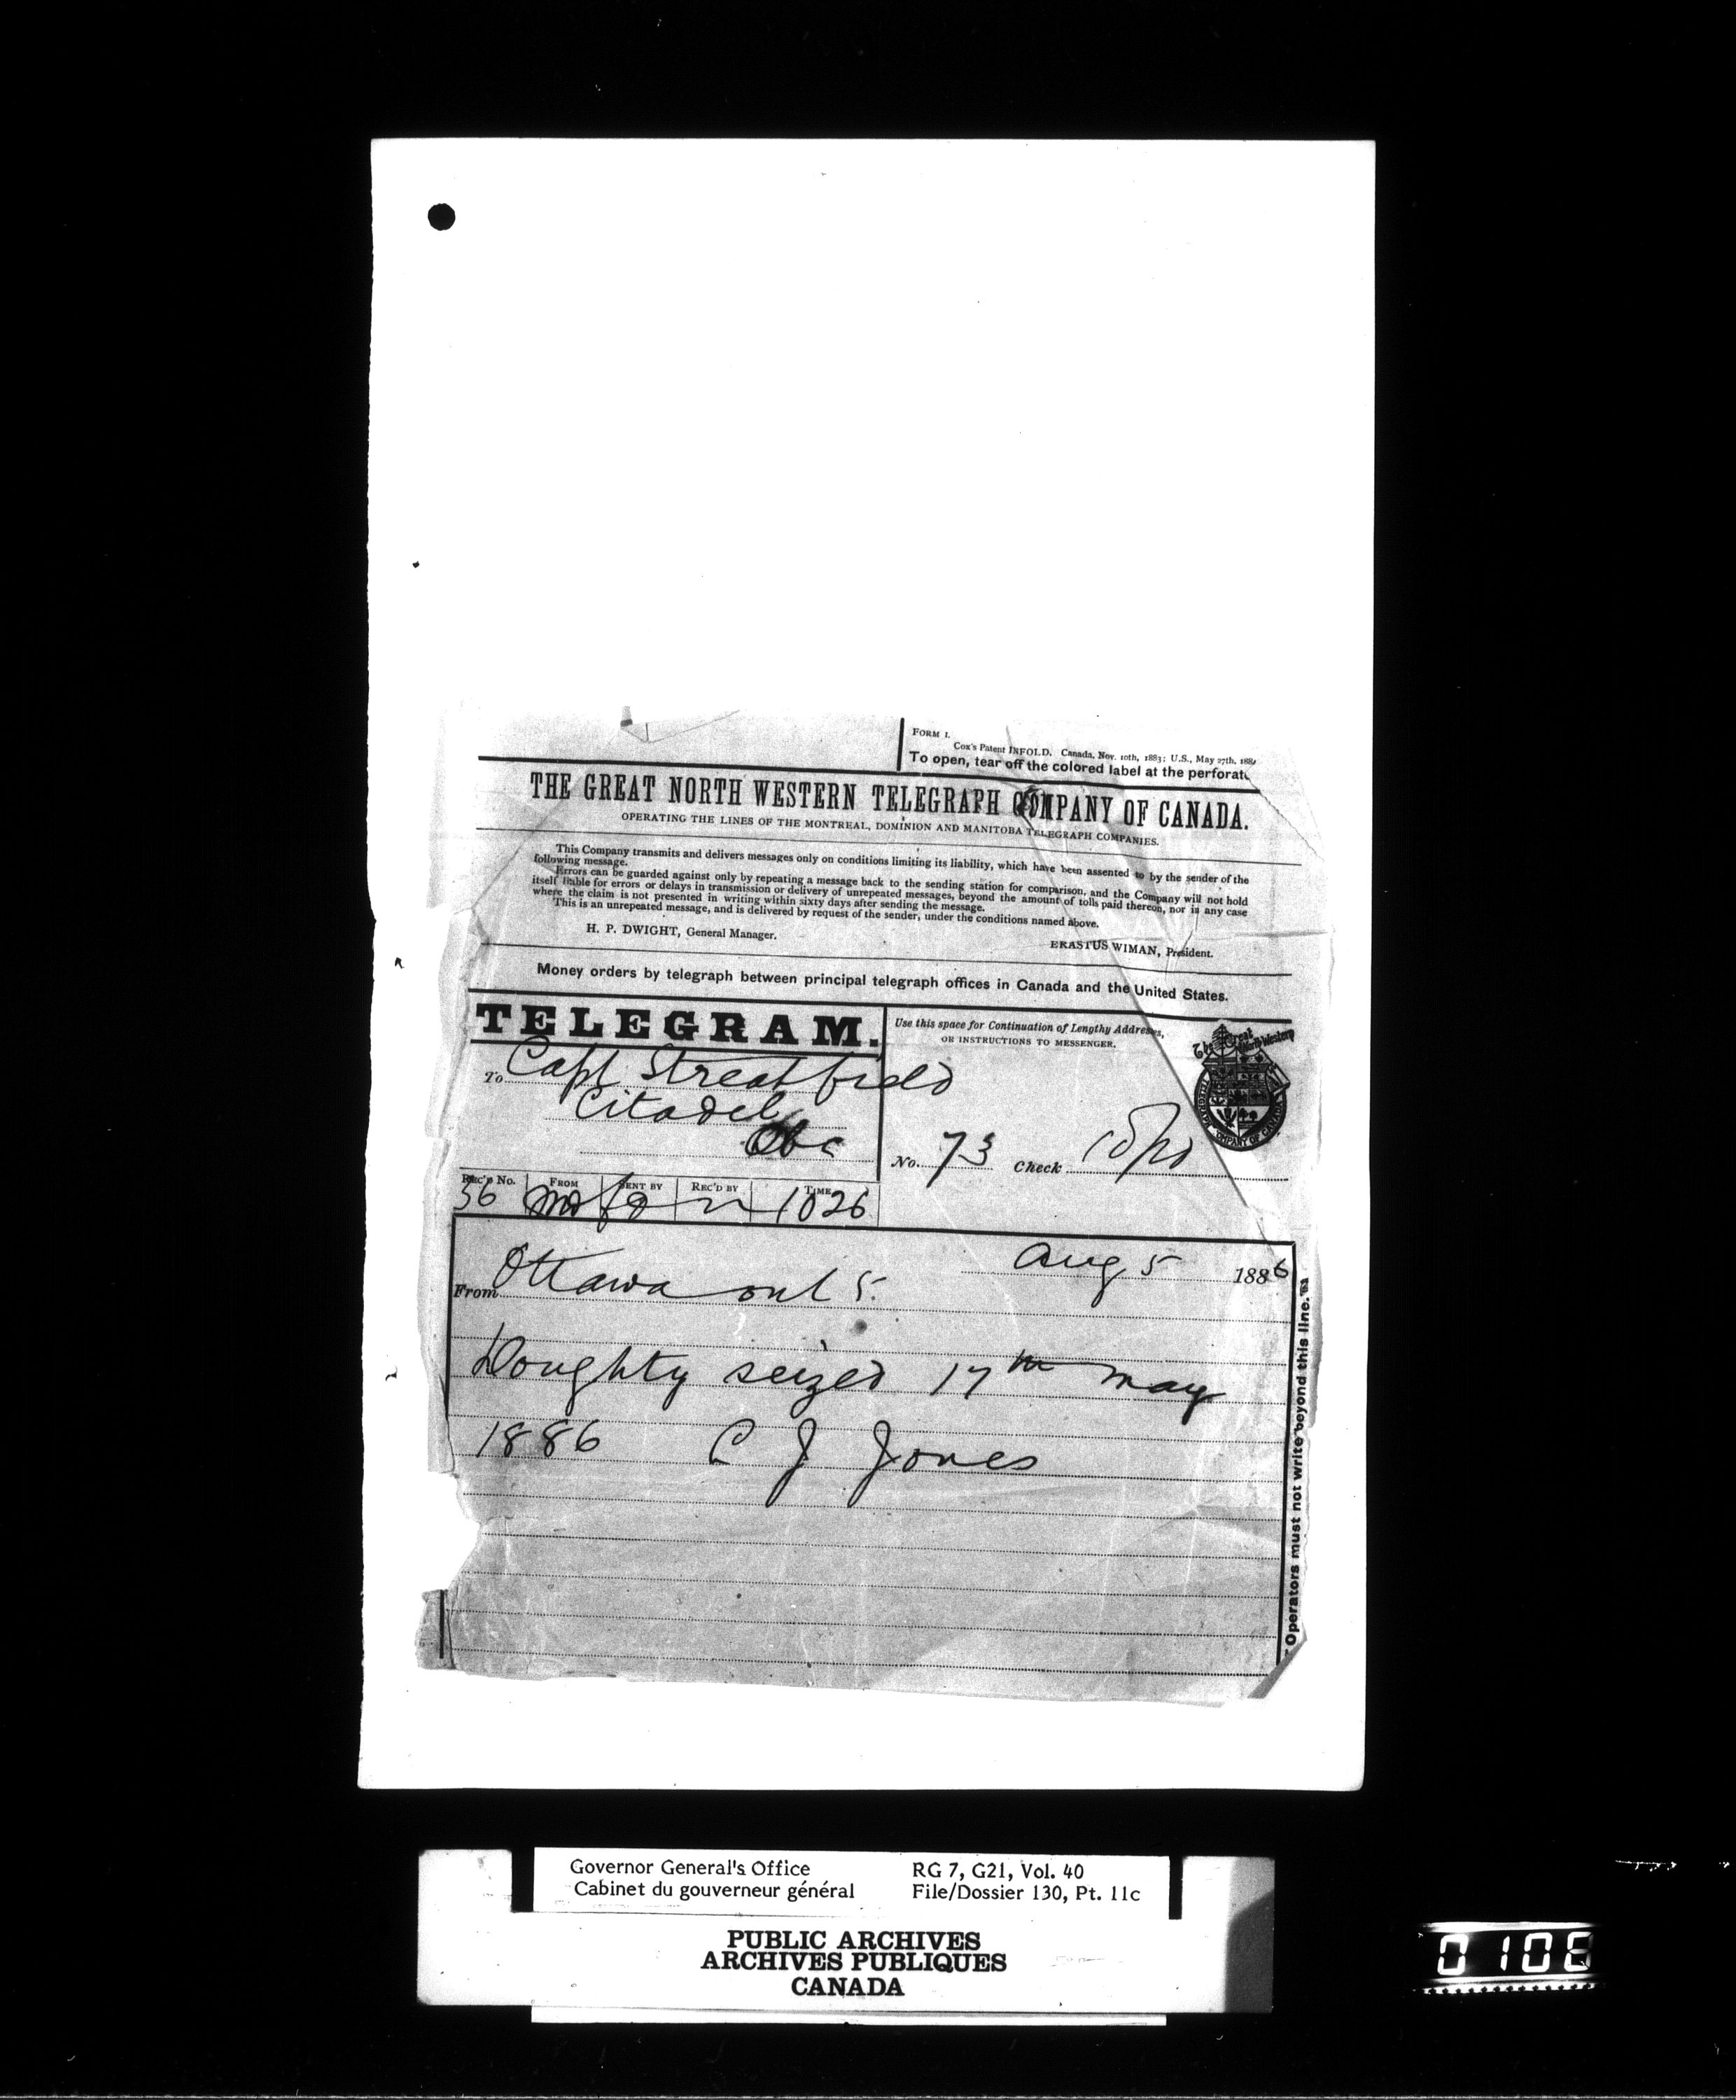 FORM 1.
Cox's Patent INFOLD. Canada, Nov. 10th, 1883; U.S., May 27th, 188
To open, tear off the colored label at the perforat
THE GREAT NORTH WESTERN TELEGRAPH COMPANY OF CANADA.
OPERATING THE LINES OF THE MONTREAL, DOMINION AND MANITOBA TELEGRAPH COMPANIES.
This Company transmits and delivers messages only on conditions limiting its liability, which have been assented to by the sender of the
following message.
Errors can be guarded against only by repeating a message back to the sending station for comparison, and the Company will not hold
itself liable for errors or delays in transmission or delivery of unrepeated messages, beyond the amount of tolls paid thereon, nor in any case
where the claim is not presented in writing within sixty days after sending the message.
This is an unrepeated message, and is delivered by request of the sender, under the conditions named above.
H. P. DWIGHT, General Manager.
ERASTUS WIMAN, President.
Money orders by telegraph between principal telegraph offices in Canada and the United States.
TELEGRAM.
Use this space for Continuation of Lengthy Addresses,
OR INSTRUCTIONS TO MESSENGER.
The Great North Western
TELEGRAPH COMPANY OF CANADA
To Capt Streatfield
Citadel
Qbc
No. 73 Check
REC'D No. FROM SENT BY REC'D BY TIME
36 1026
Aug 5 1886
From Ottawa ont 5.
Doughty seized 17th may
1886 C J Jones
Operators must not write beyond this line.
Governor General's Office RG 7, G21, Vol. 40
Cabinet du gouverneur général File/Dossier 130, Pt. 11c
PUBLIC ARCHIVES
ARCHIVES PUBLIQUES
CANADA